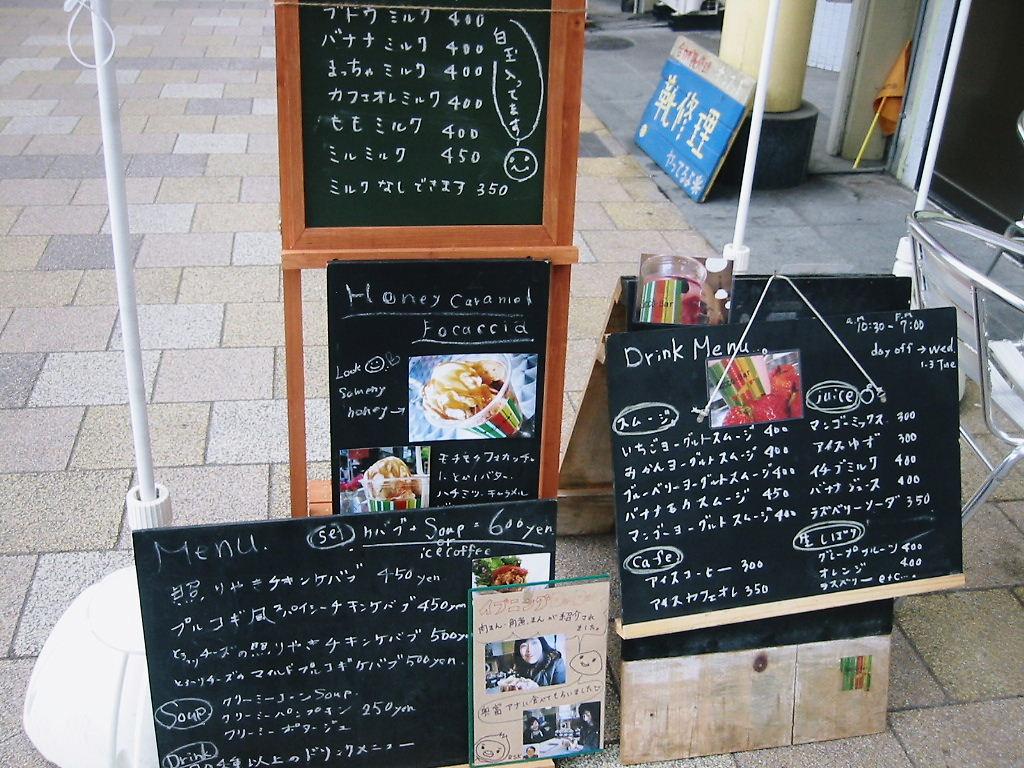 ブドウミルク 400
バナナミルク 400
まっちゃミルク 400
カフェオレミルク 400
ももミルク 400
ミルミルク 450
ミルクなしできます 350
白玉入ってます
靴修理
やってるよ
Honey Caramel
Focaccia
Look
So many
honey→
モチモチフォカッチャ
ハチミツ・キャラメル
Drink Menu.
a.m 10:30 - P.M 7:00
day off → Wed.
1.3 Tue
スムージ
いちごヨーグルトスムージ 400
みかんヨーグルトスムージ 400
ブルーベリーヨーグルトスムージ 400
バナナモカスムージ 450
マンゴーヨーグルトスムージ 400
Cafe
アイスコーヒー 300
アイスカフェオレ 350
juice
マンゴーミックス 300
アイスゆず 300
イチゴミルク 400
バナナジュース 400
ラズベリーソーダ 350
生しぼり
グレープフルーツ 400
オレンジ 400
ラズベリー etc...
Menu.
Set ケバブ + Soup = 600yen
or
ice coffee
照りやきチキンケバブ 450yen
プルコギ風スパイシーチキンケバブ 450yen
とろ〜りチーズの照りやきチキンケバブ 500yen
とろ〜りチーズのマイルドプルコギケバブ 500yen
Soup
クリーミーコーンSoup.
クリーミーパンプキン 250yen
クリーミーポタージュ
Drink
種以上のドリンクメニュー
イブニング
肉まん、角煮まんが紹介され
ました。
アナに食べてもらいました